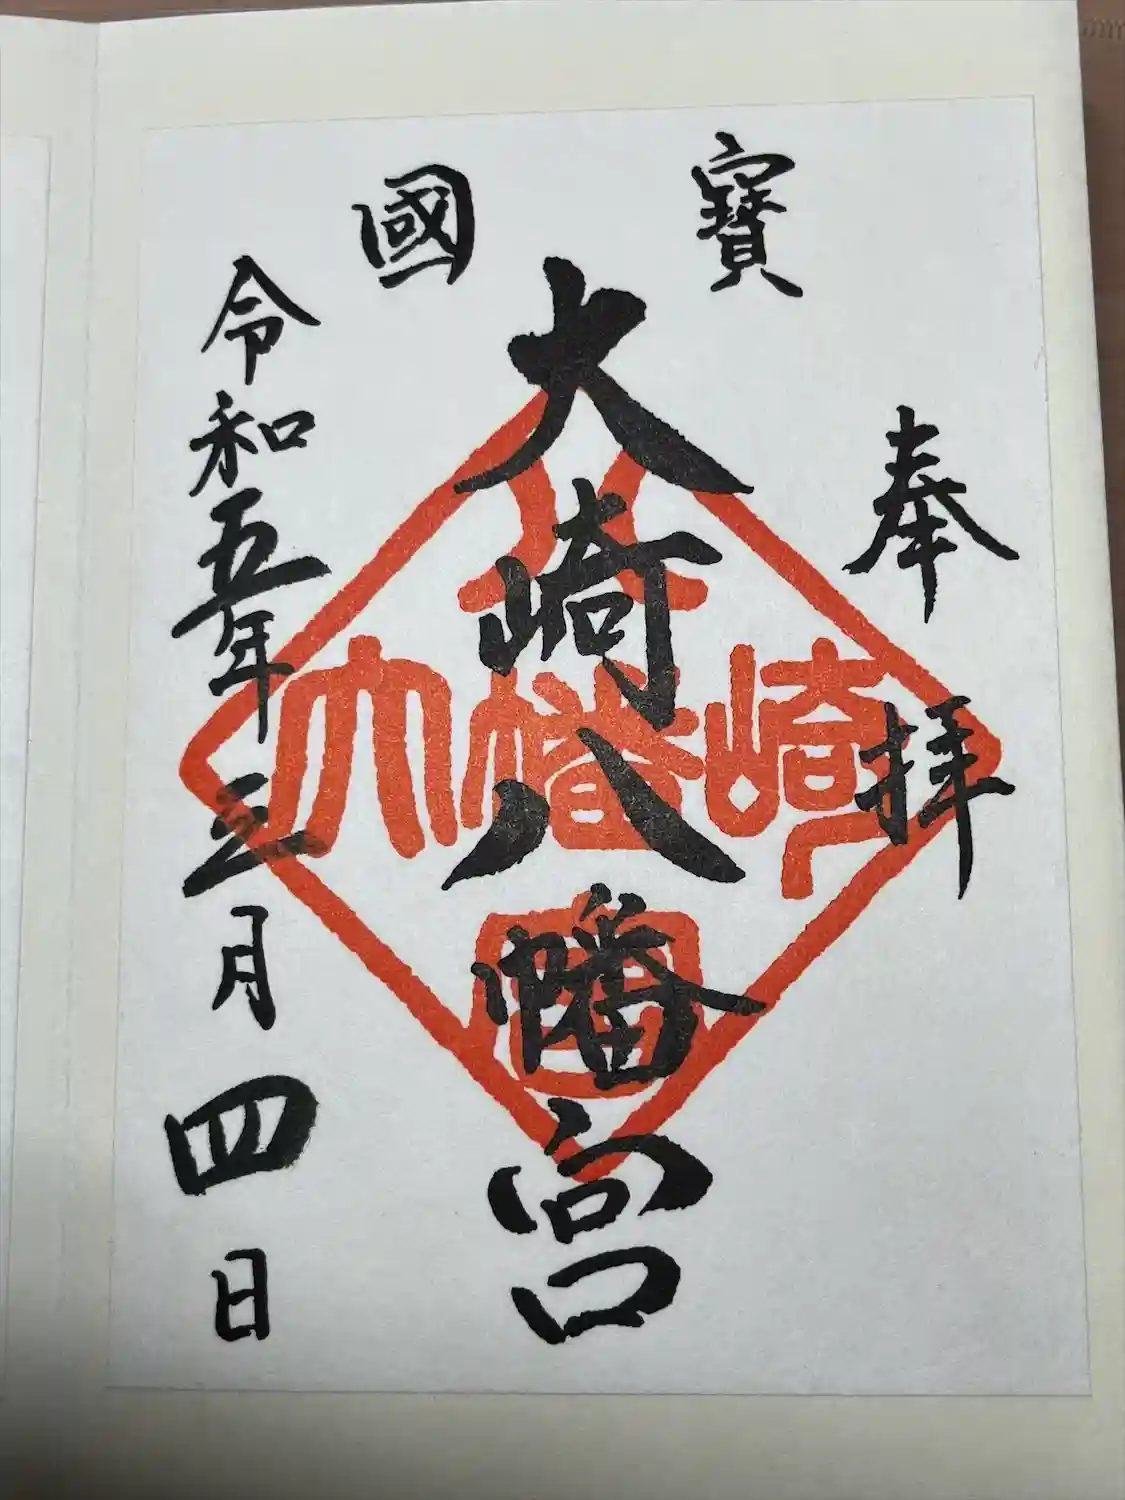 奉拝
國寳
大崎八幡宮
令和五年三月四日
大崎八幡宮